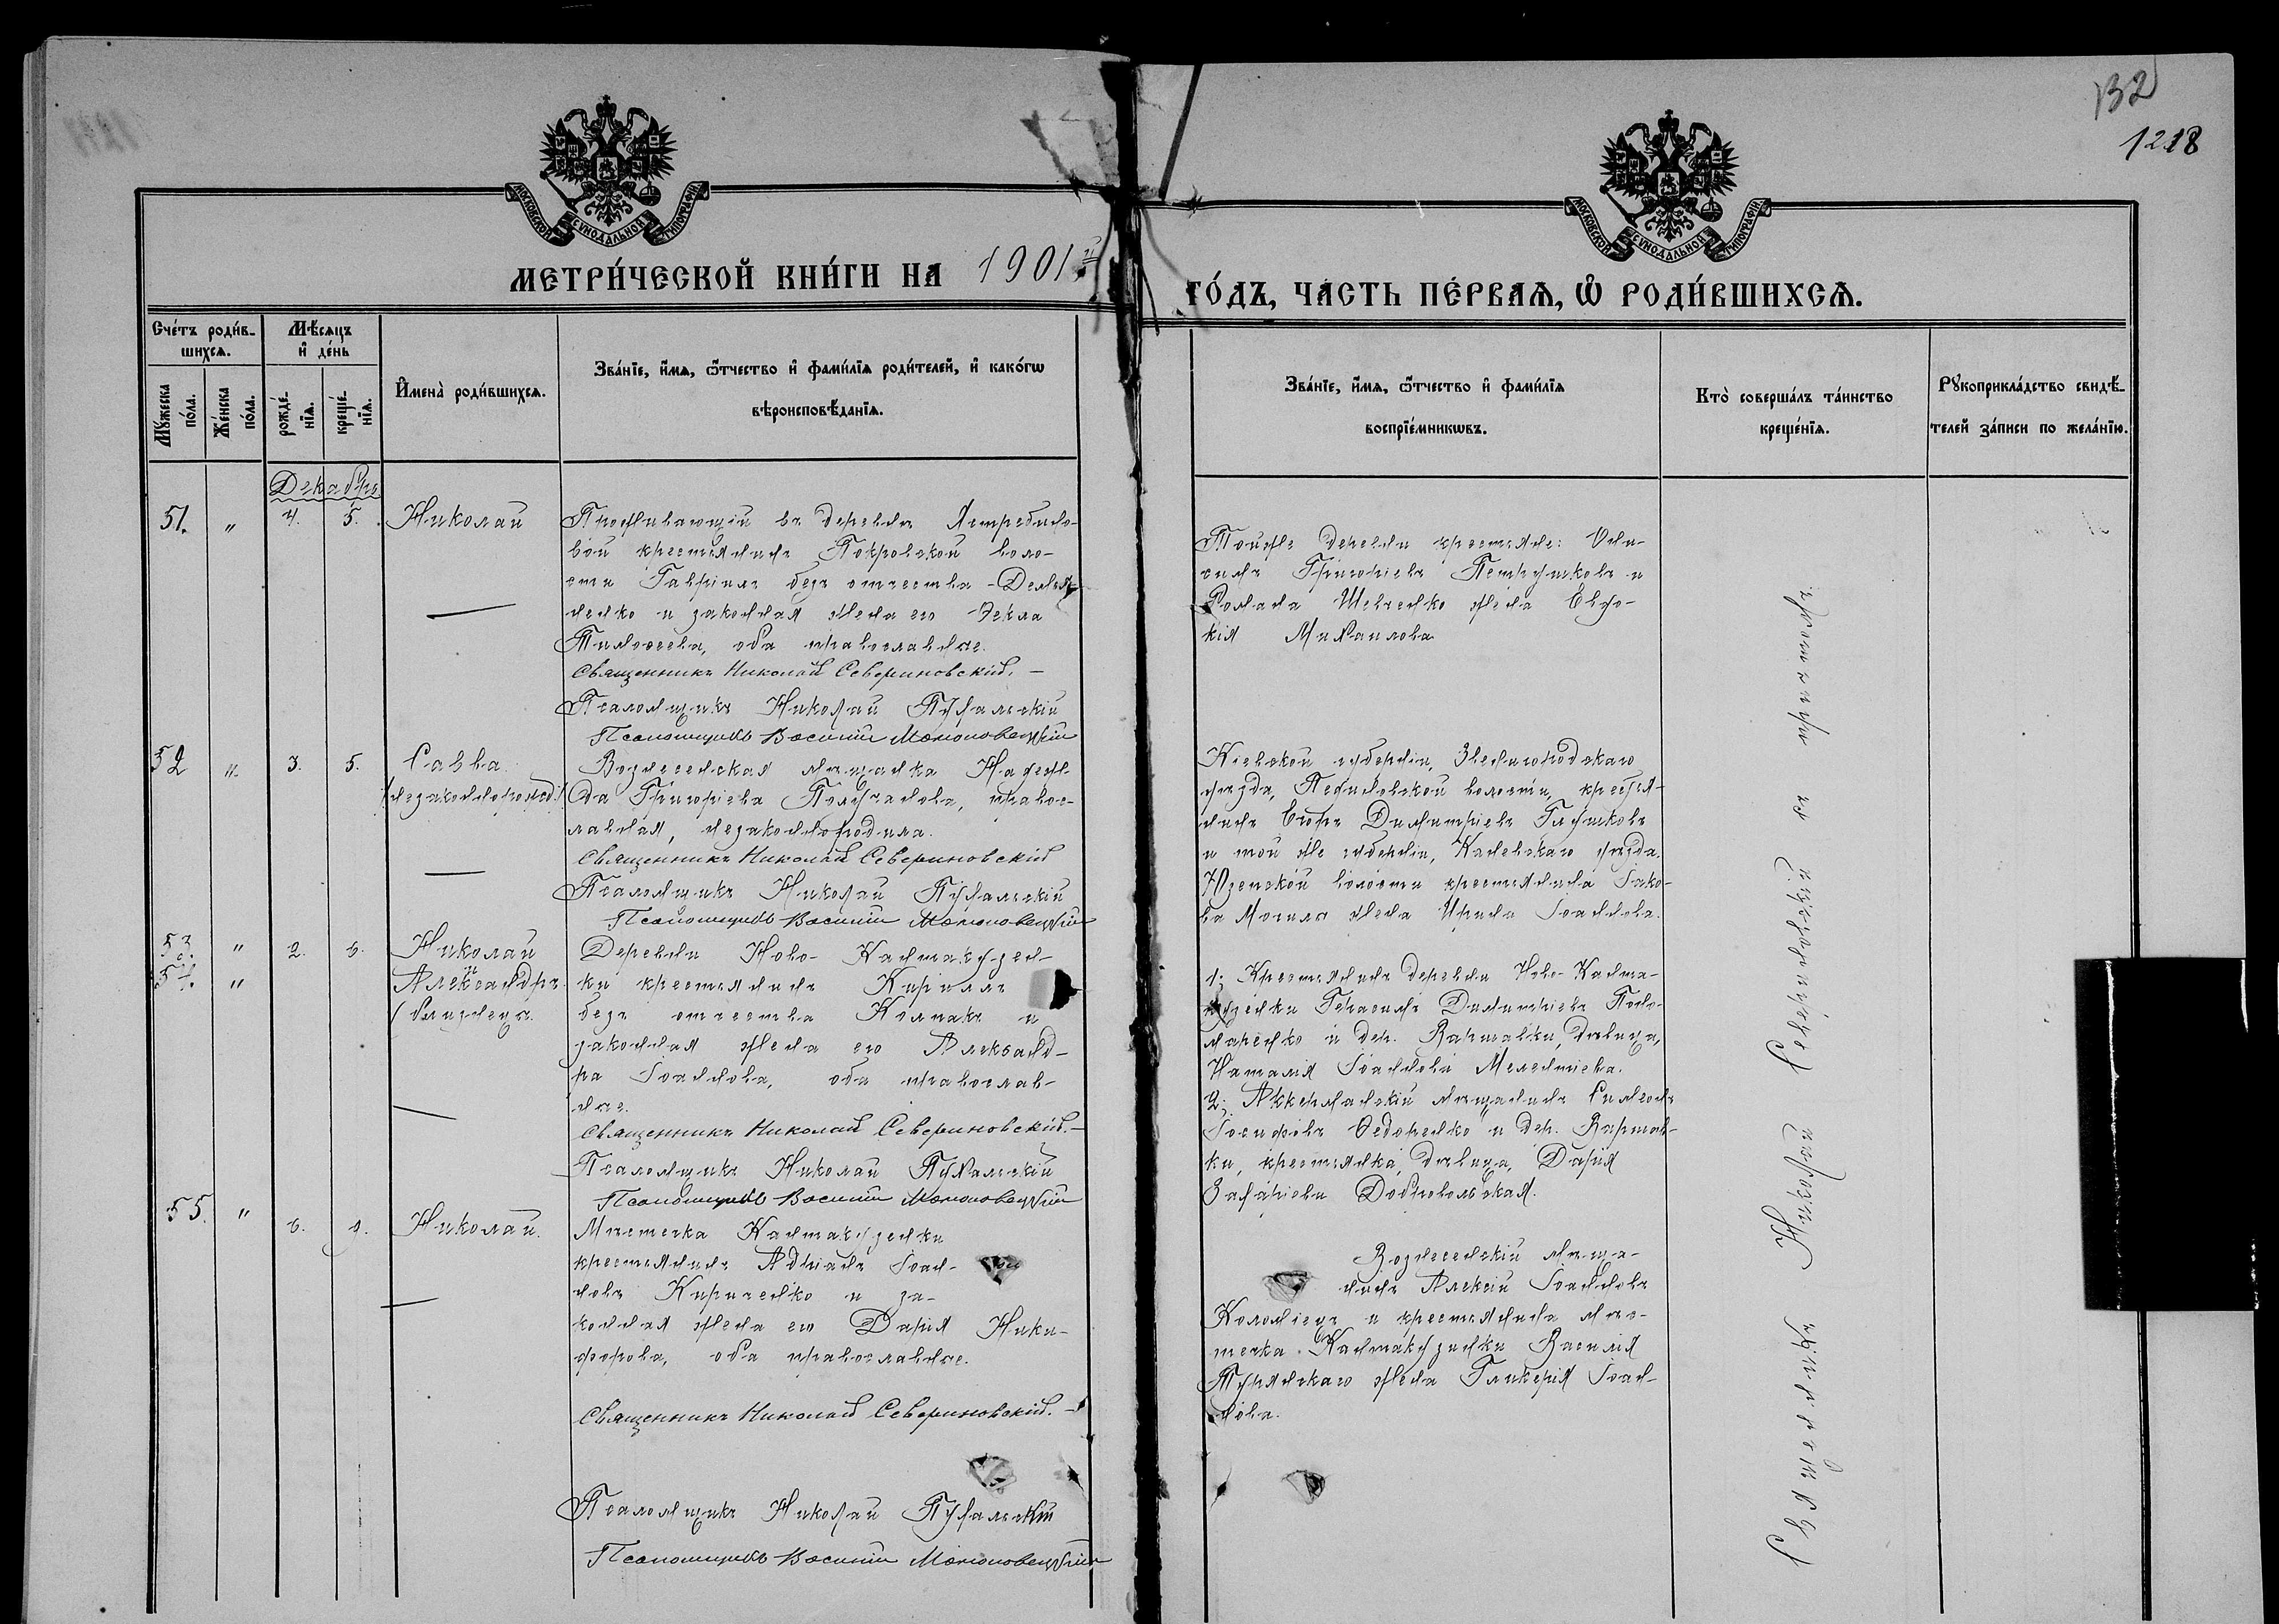 132
1218
МОСКОВСКОЙ СѴНОДАЛЬНОЙ ТИПОГРАФІИ
МОСКОВСКОЙ СѴНОДАЛЬНОЙ ТИПОГРАФІИ
МЕТРИ́ЧЕСКОЙ КНИ́ГИ НА 1901й
ГО́ДЪ, ЧА́СТЬ ПЕ́РВАѦ, Ѡ РОДИ́ВШИХСѦ.
Сче́тъ роди́в-
шихсѧ.
Мꙋжеска по́ла.
Же́нска по́ла.
Мѣ́сѧцъ и де́нь
рожде́нїѧ.
креще́нїѧ.
Имена̀ роди́вшихсѧ.
Зва́нїе, и́мѧ, ѻ́тчество и фами́лїѧ роди́телей, и како́гѡ
вѣроисповѣ́данїѧ.
Зва́нїе, и́мѧ, ѻ́тчество и фами́лїѧ
воспрїе́мникѡвъ.
Кто̀ соверша́лъ та́инство
креще́нїѧ.
Рꙋкоприкла́дство свидѣ́-
телей за́писи по жела́нїю.
Декабрь
51. " 4. 5. Николай
Проживающій въ деревнѣ Ястребино-
вой крестьянинъ Покровской воло-
сти Гавріилъ безъ отчества Демья-
ненко и законная жена его Ѳекла
Тимоѳеева, оба православные.
Священникъ Николай Севериновскій.
Псаломщикъ Николай
Псаломщикъ Василій
Тойже деревни крестьяне: Они-
симъ Григорьевъ Петрушковъ и
Романа Шевченко жена Евдо-
кія Михаилова
52 " 3. 5. Савва
(незаконнорожд.)
Вознесенская мѣщанка Надеж-
да Григорьева Полужанова, правос-
лавная, незаконнородила.
Священникъ Николай Севериновскій
Псаломщикъ Николай
Псаломщикъ Василій
Кіевской губерніи, Звенигородскаго
уѣзда, волости, крестья-
нинъ Димитріевъ Глушковъ
и той же губерніи, Каневскаго уѣзда,
волости крестьянина Іако-
ва Могила жена Ирина Іоаннова.
53. " 2. 6. Николай
и
54. " Александръ
(близнецы.
Деревни Ново-Кантакузен-
ки крестьянинъ Кириллъ
безъ отчества Колпакъ и
законная жена его Александ-
ра Іоаннова, оба православ-
ные.
Священникъ Николай Севериновскій.
Псаломщикъ Николай
Псаломщикъ Василій
1; Крестьянинъ деревни Ново-Канта-
кузенки Герасимъ Димитріевъ Поно-
маренко и дер. Варшавки, дѣвица,
Наталія Іоаннова Мелентіева.
2; Аккерманскій мѣщанинъ Симеонъ
Іосифовъ Ѳедоренко и дер. Варшав-
ки, крестьянка, дѣвица, Дарія
Захаріева Добровольская.
55. " 6. 9. Николай.
Мѣстечка Кантакузенки
крестьянинъ Адріанъ Іоан-
новъ Кириченко и за-
конная жена его Дарія Ники-
форова, оба православные.
Священникъ Николай Севериновскій.
Псаломщикъ Николай
Псаломщикъ Василій
Вознесенскій мѣща-
нинъ Алексій Іоанновъ
Коломіецъ и крестьянина мѣс-
течка Кантакузенки Василія
Турянскаго жена Гликерія Іоан-
нова.
Священникъ Николай Севериновскій съ причтомъ.